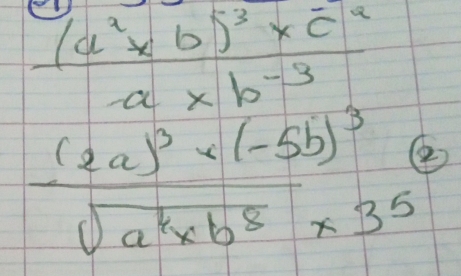 (a² × b)³ × c̄²
-a × b⁻³
(2a)³ × (-5b)³ ②
√a⁴×b⁸ × 3⁵